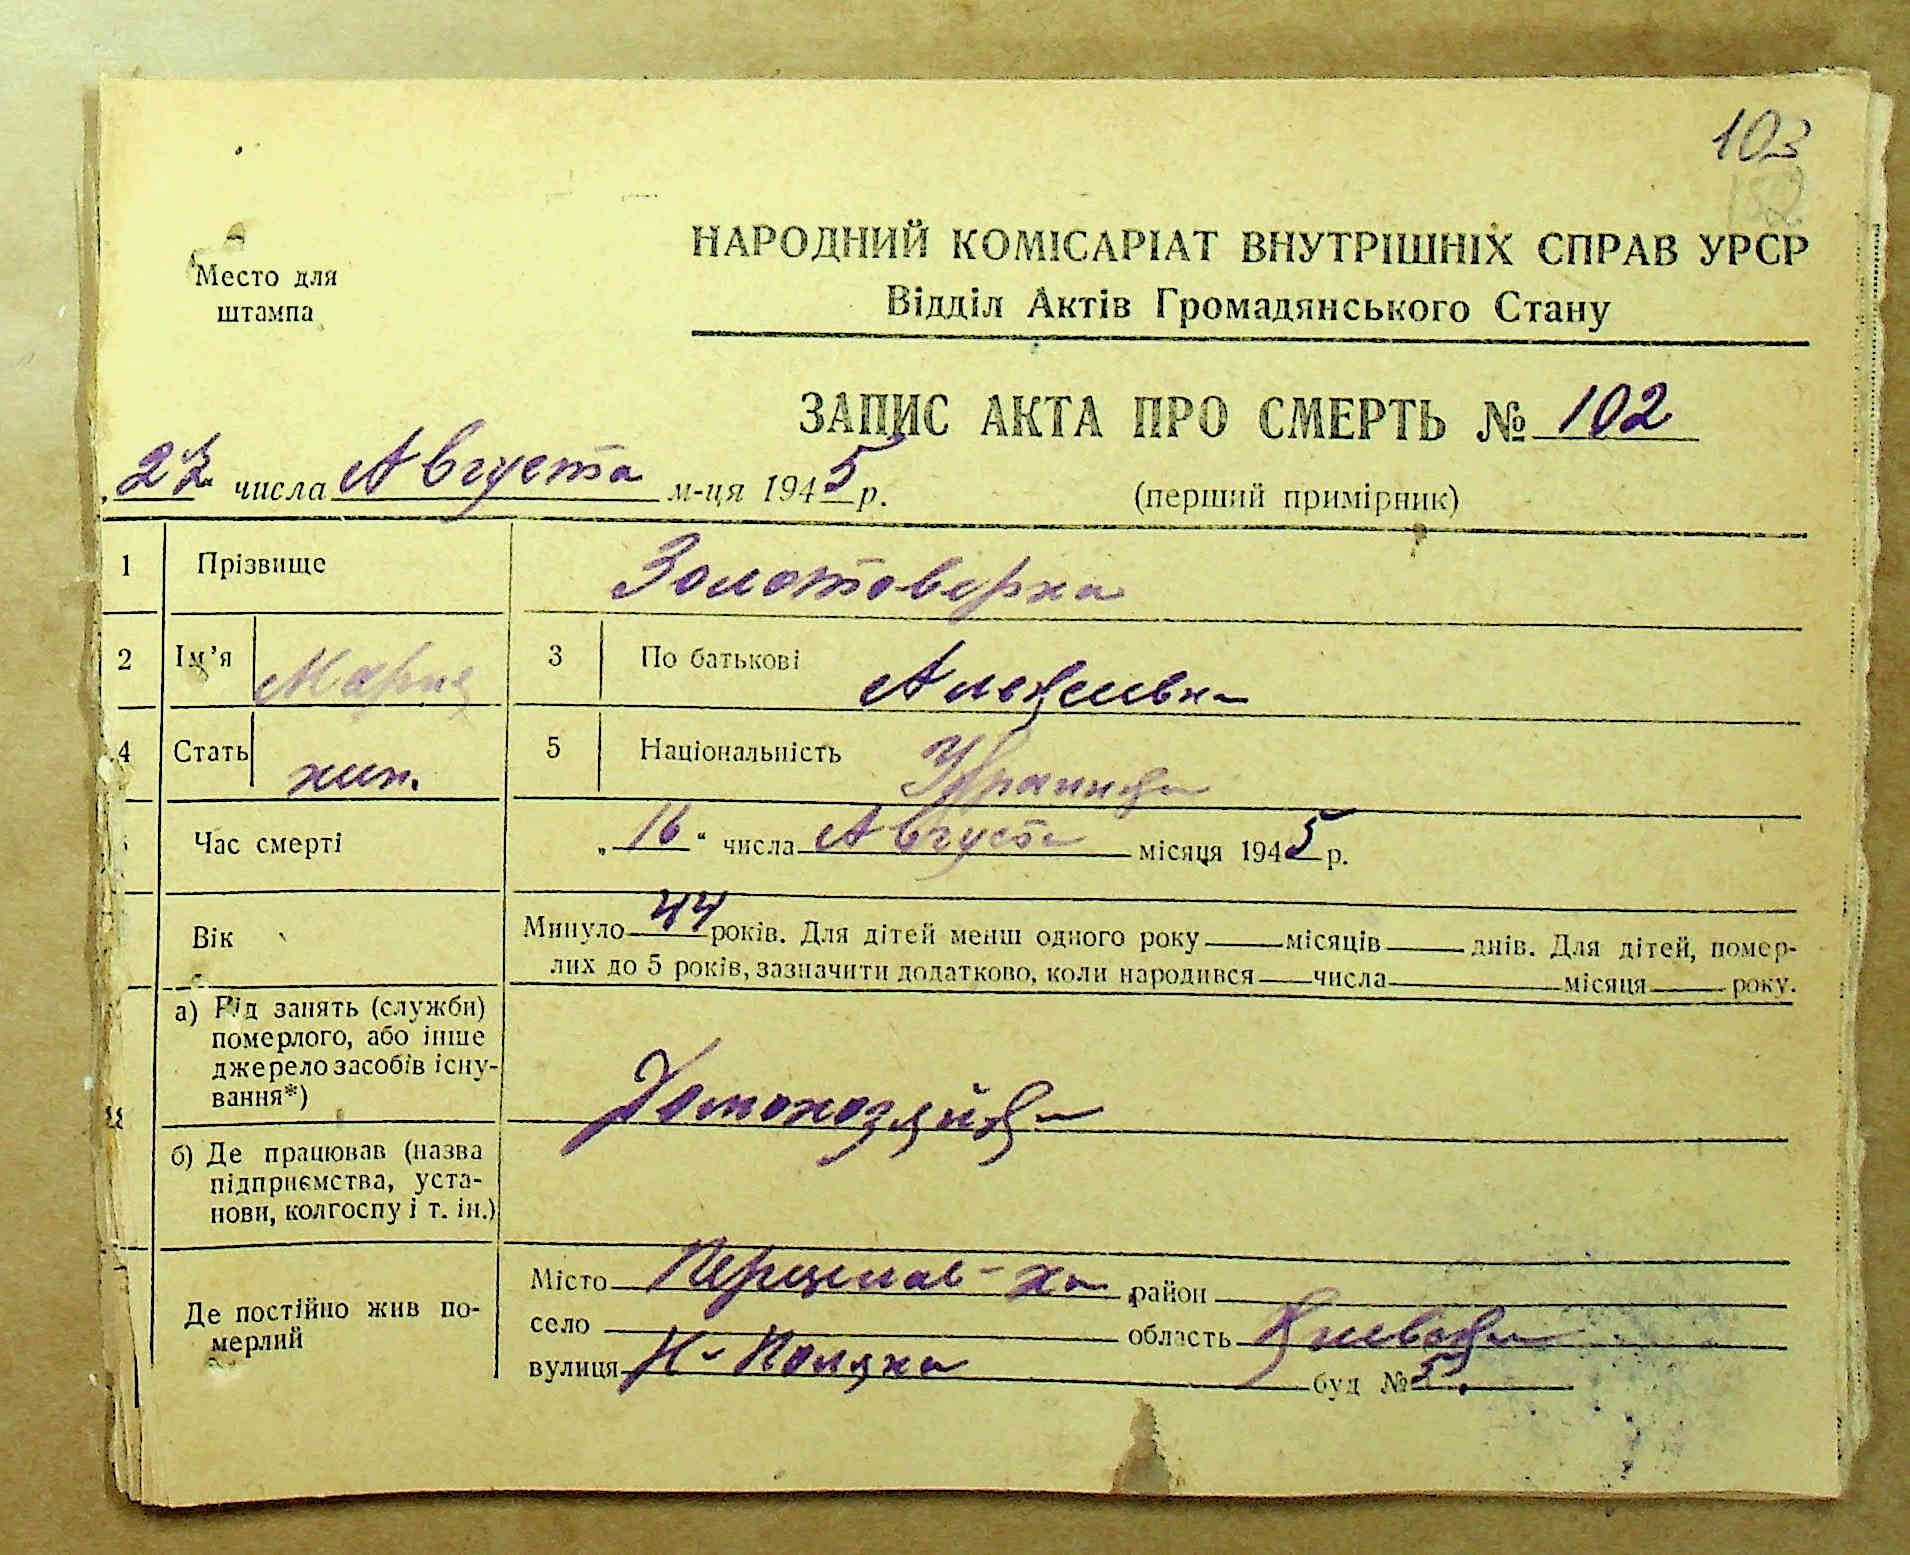 103
152
Место для
штампа
НАРОДНИЙ КОМІСАРІАТ ВНУТРІШНІХ СПРАВ УРСР
Відділ Актів Громадянського Стану
ЗАПИС АКТА ПРО СМЕРТЬ № 102
числа Августа м-ця 1945 р.
(перший примірник)
1 Прізвище Золотоверха
2 Ім'я Мария 3 По батькові Алексеевна
4 Стать жин. 5 Національність Украинка
Час смерті „16“ числа Августа місяця 1945 р.
Вік Минуло 44 років. Для дітей менш одного року місяців днів. Для дітей, помер-
лих до 5 років, зазначити додатково, коли народився числа місяця року.
а) Рід занять (служби)
померлого, або інше
джерело засобів існу-
вання*)
Домохозяйка
б) Де працював (назва
підприємства, уста-
нови, колгоспу і т. ін.)
Де постійно жив по-
мерлий
Місто район
село область Киевская
вулиця буд № 5.